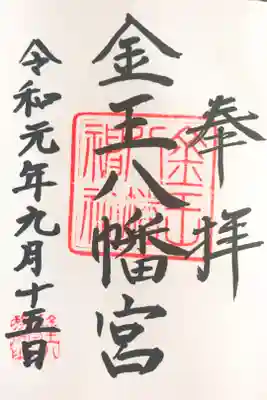 奉拝
金王八幡宮
令和元年九月十五日